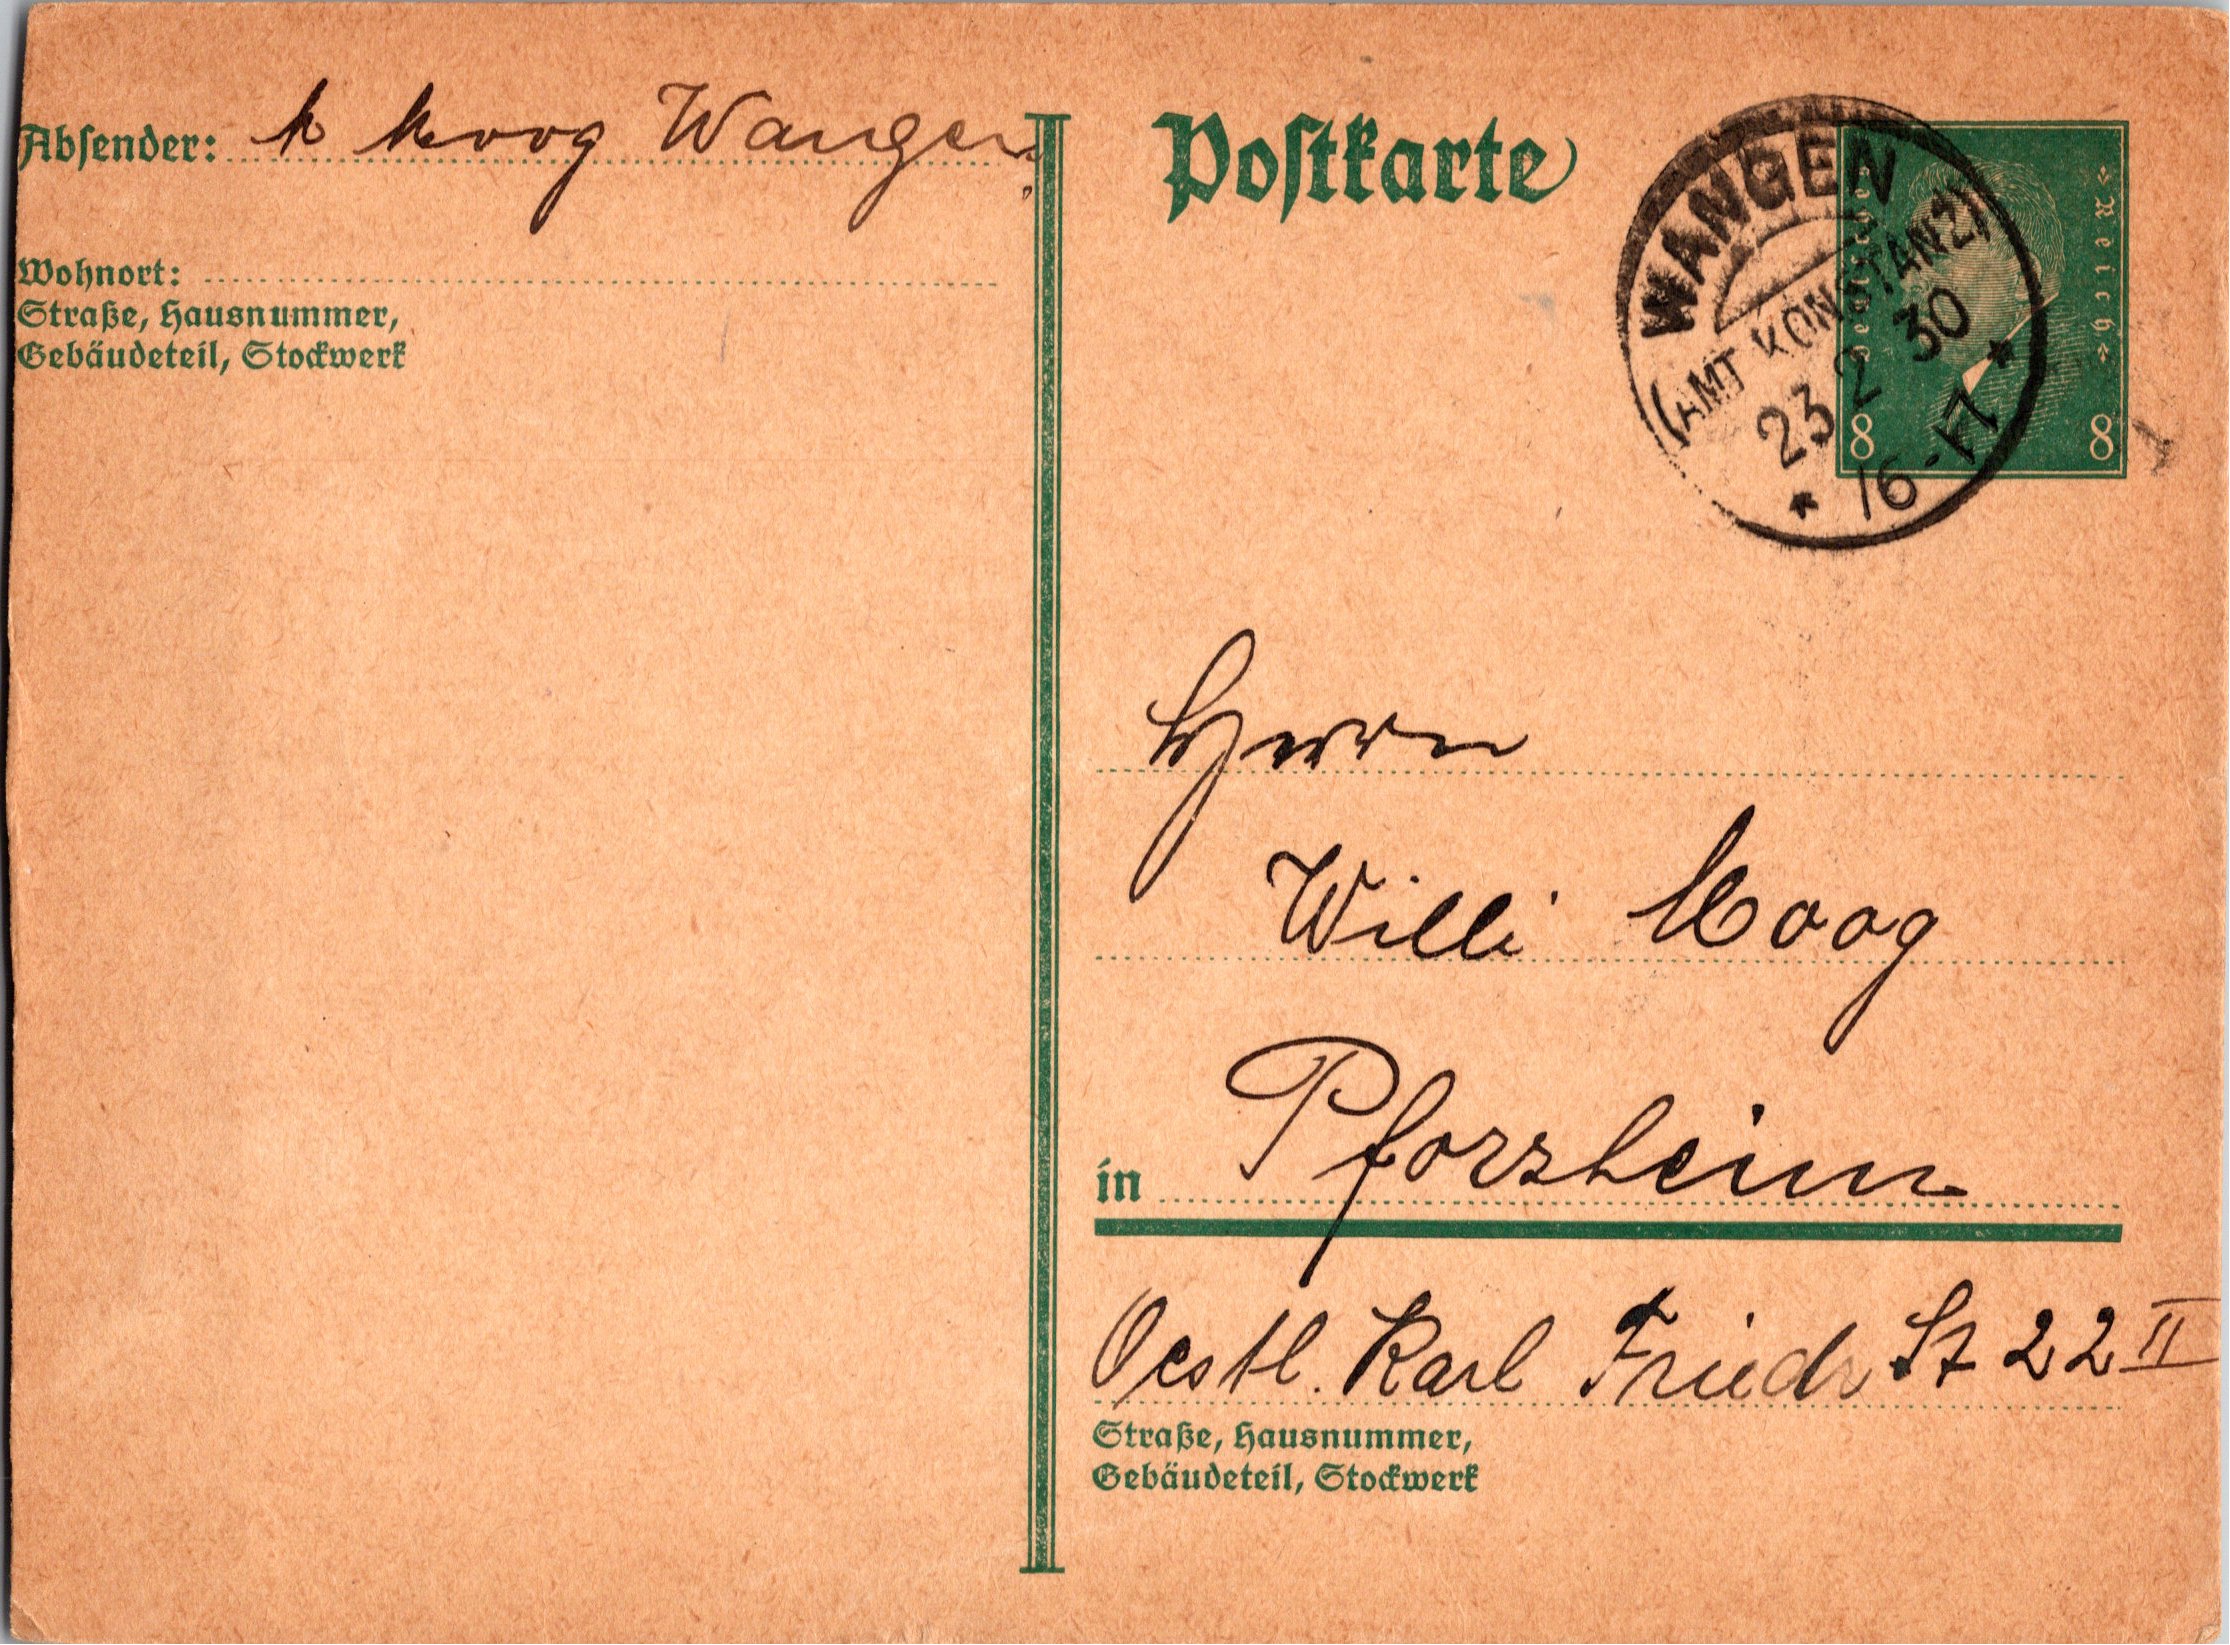 Absender: K Moog Wangen
Wohnort:
Straße, Hausnummer,
Gebäudeteil, Stockwerk
Postkarte
WANGEN
(AMT KONSTANZ)
23 2 30
* 16-17 *
Deutsches
Reich
8 8
Herrn
Willi Moog
in Pforzheim
Oestl. Karl Friedr St 22 II
Straße, Hausnummer,
Gebäudeteil, Stockwerk